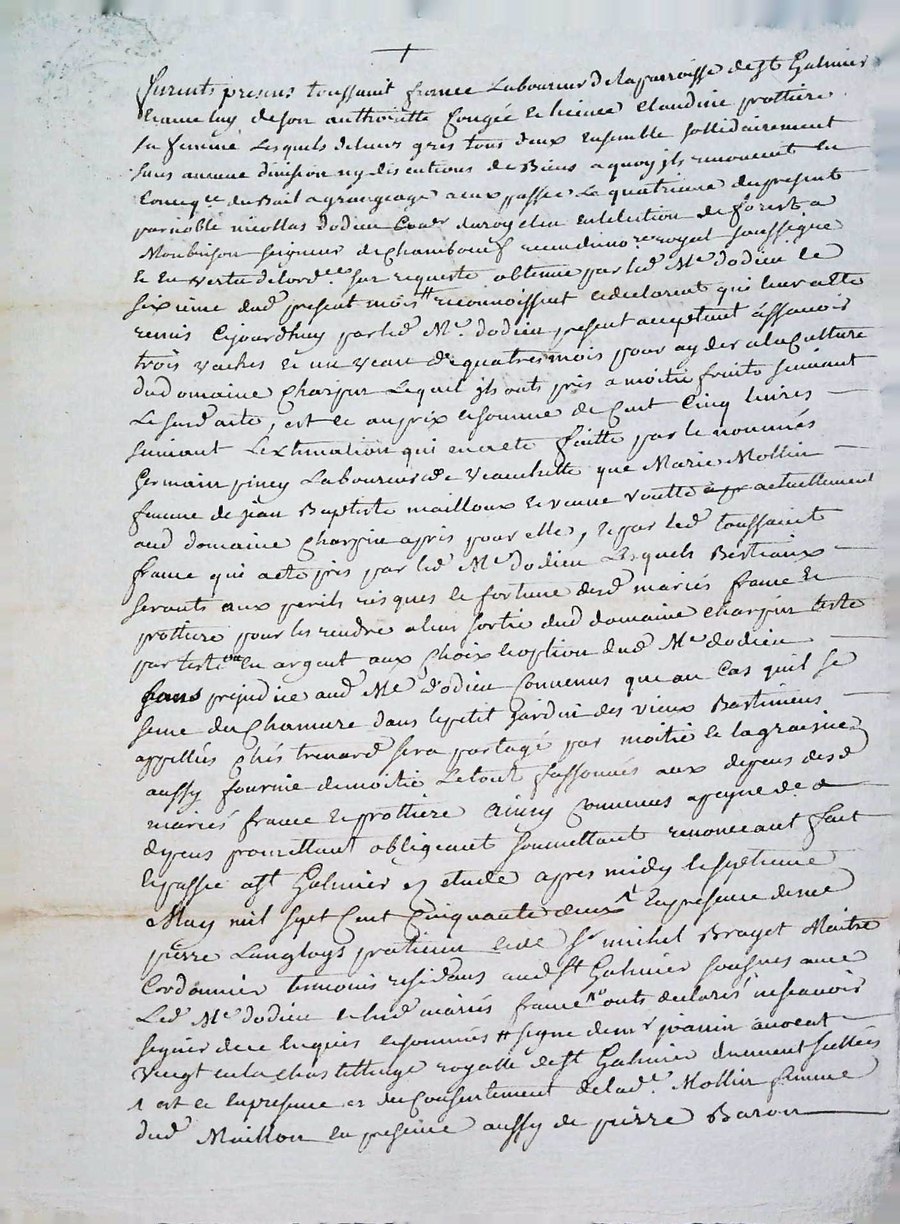 +
furents presens toussaint france Laboureur de la parroisse de st Galmier
de son authoritté Congée et licence Claudine prottiere
sa femme Lesquels de leurs gres tous deux Ensemble sollidairement
sans aucune division ny discutions de Biens a quoy ils renoncent En
du Bail a grangeage a eux passée Le quatrieme du present
par noble nicollas dodieu du roy en Election de forest a
Monbrison seigneur de Chambœuf royal soussigné
et En vertu de lord.ce sur requeste obtenue par led Me dodieu le
sixieme dud present mois # reconnoissent et declarent qui leur a ete
remis Cejourdhuy par led Mr. dodieu present acceptant assavoir
trois vaches et un veau de quatres mois pour ayder a la Culture
du domaine Charpin Lequel ils onts pris a moitié fruits suivant
Le susd acte, est ce au prix et somme de Cent Cinq livres
suivant Lextimation qui en a ete faitte par le nommés
Germain piney Laboureur de Veauchette que Marie Mollin
femme de jean Baptiste mailloux et veuve actuellement
aud domaine Charpin a pris pour elle, et par led toussaint
france qui a ete pris par led Me dodieu Lesquels Bestiaux
seronts aux perils risques et fortune desd mariés france et
prottiere pour les rendre a leur sortie dud domaine charpin teste
par teste ou En argent aux Choix et option dud Me dodieu
sans prejudice aud Me dodieu Convenus que au Cas quil se
seme du Chanvre dans le petit jardin des vieux Bastiments
appellés Chés trenard sera partagé par moitié et la graine
aussy fournie de moitié Le tout fassonnés aux depens desd
mariés france et prottiere Ainsy Convenus a peyne de
depens promettant obligeant soumettant renonceant fait
et passé a st Galmier etude apres midy le septieme
May mil sept Cent Cinquante deux 1 En presence de me
pierre Langloys praticien et de sr michel Brayet Maitre
Cordonnier temoins residans aud st Galmier sousnes avec
Led Me dodieu et lesd mariés france onts declarés ne scavoir
signer de ce Enquis et sommés # signé de mr joannin avocat
Vingt en la Chastellenge royalle de st Galmier duement scellées
1 est ce En presence et du Consentement de lad.e Mollin femme
dud Maillon En presence aussy de pierre Baron